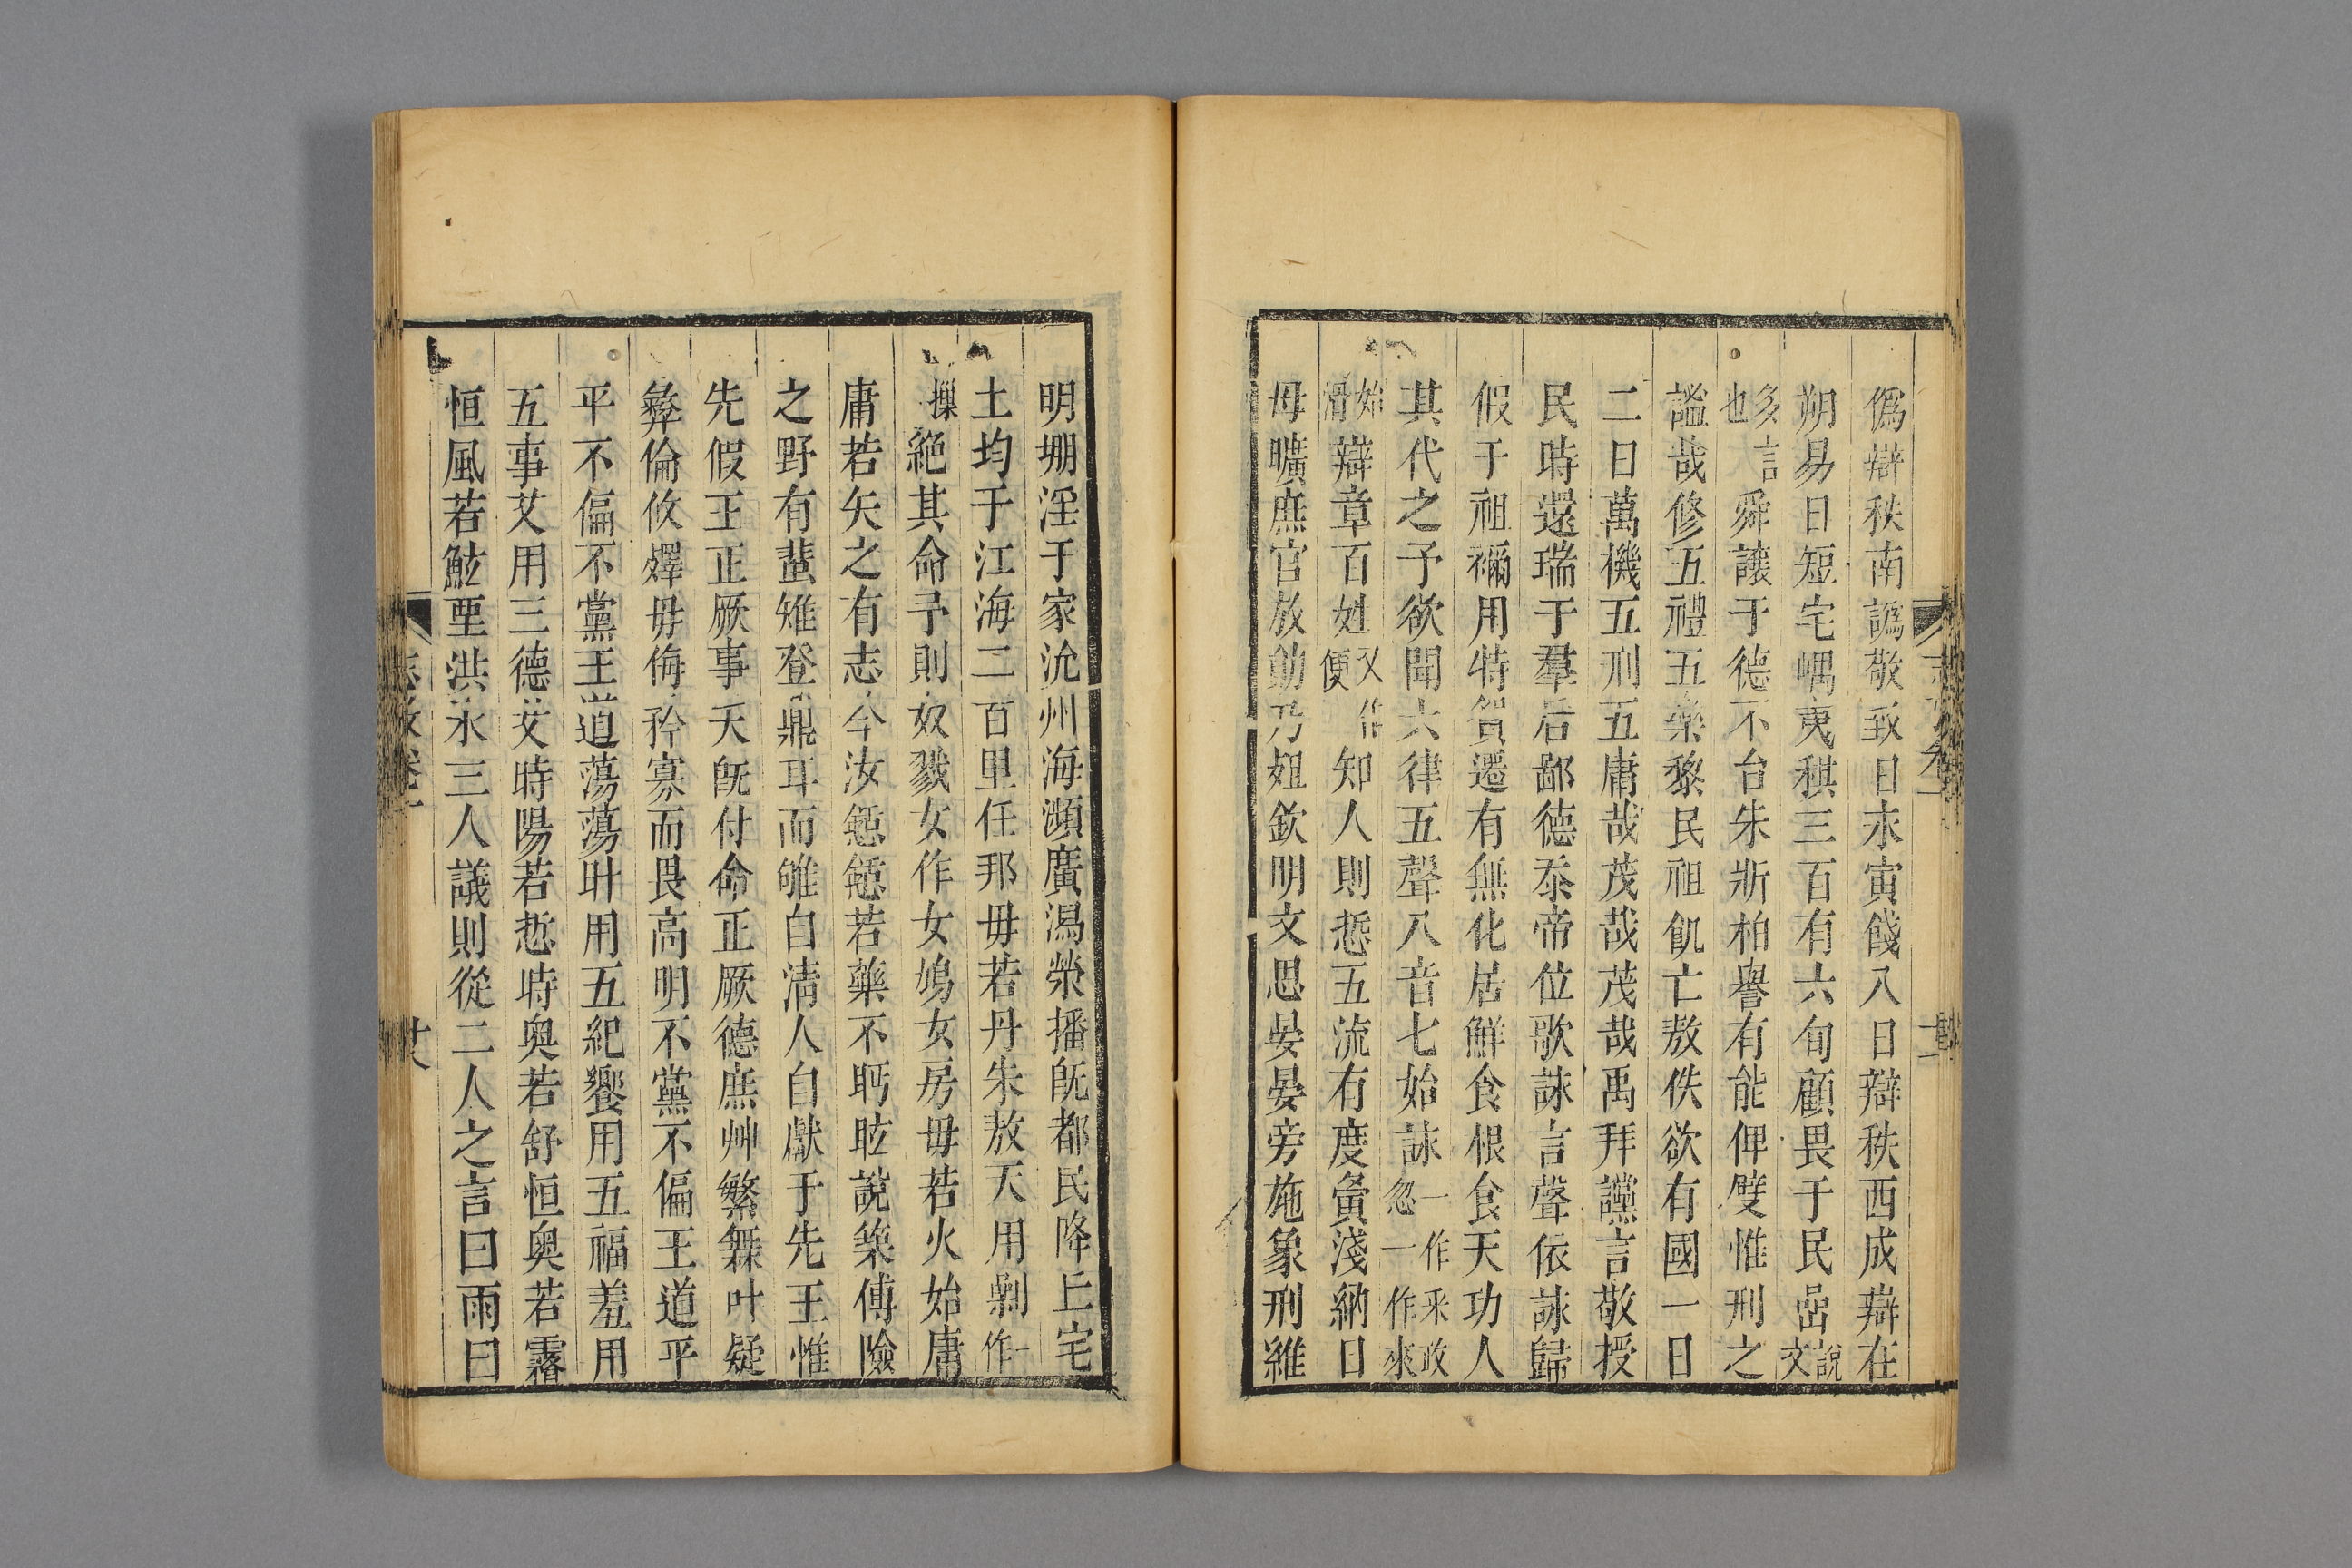 僞辯秩南譌敬致日永寅餞入日辯秩西成辯在
朔易日短宅嵎夷稘三百有六旬顧畏于民嵒說文
多言也舜讓于德不台朱斨柏譽有能俾嬖惟刑之
謐哉修五禮五樂黎民祖飢亡敖佚欲有國一日
二日萬機五刑五庸哉茂哉茂哉禹拜讜言敬授
民時還瑞于羣后鄙德忝帝位歌詠言聲依詠歸
假于祖禰用特貿遷有無化居鮮食根食天功人
其代之予欲聞六律五聲八音七始詠一作采政忽一作來
始滑辯章百姓又作便知人則悊五流有度夤淺納日
毋曠庶官放勛乃殂欽明文思晏晏旁施象刑維
明堋淫于家沇州海瀕廣潟滎播旣都民降丘宅
土均于江海二百里任邦毋若丹朱敖天用剿一作
摷絕其命予則奴戮女作女鳩女房毋若火始庸
庸若矢之有志今汝𢡱𢡱若藥不眄眩說築傅險
之野有蜚雉登鼎耳而雊自淸人自獻于先王惟
先假王正厥事天旣付命正厥德庶艸繁橆叶疑
彝倫攸嬕毋侮矜寡而畏高明不黨不偏王道平
平不偏不黨王道蕩蕩叶用五紀饗用五福羞用
五事艾用三德艾時陽若悊時奧若舒恒奧若霿
恒風若鮌垔洪水三人議則從二人之言曰雨曰